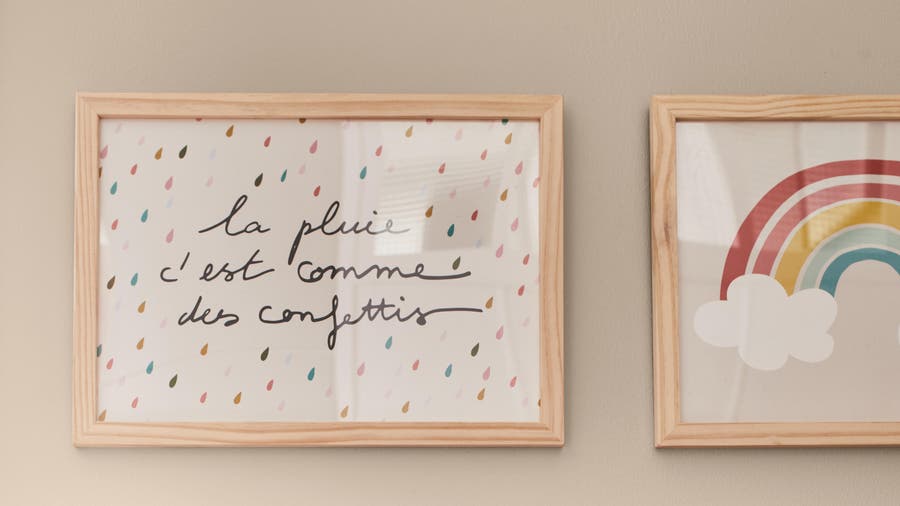 la pluie
c'est comme
des confettis